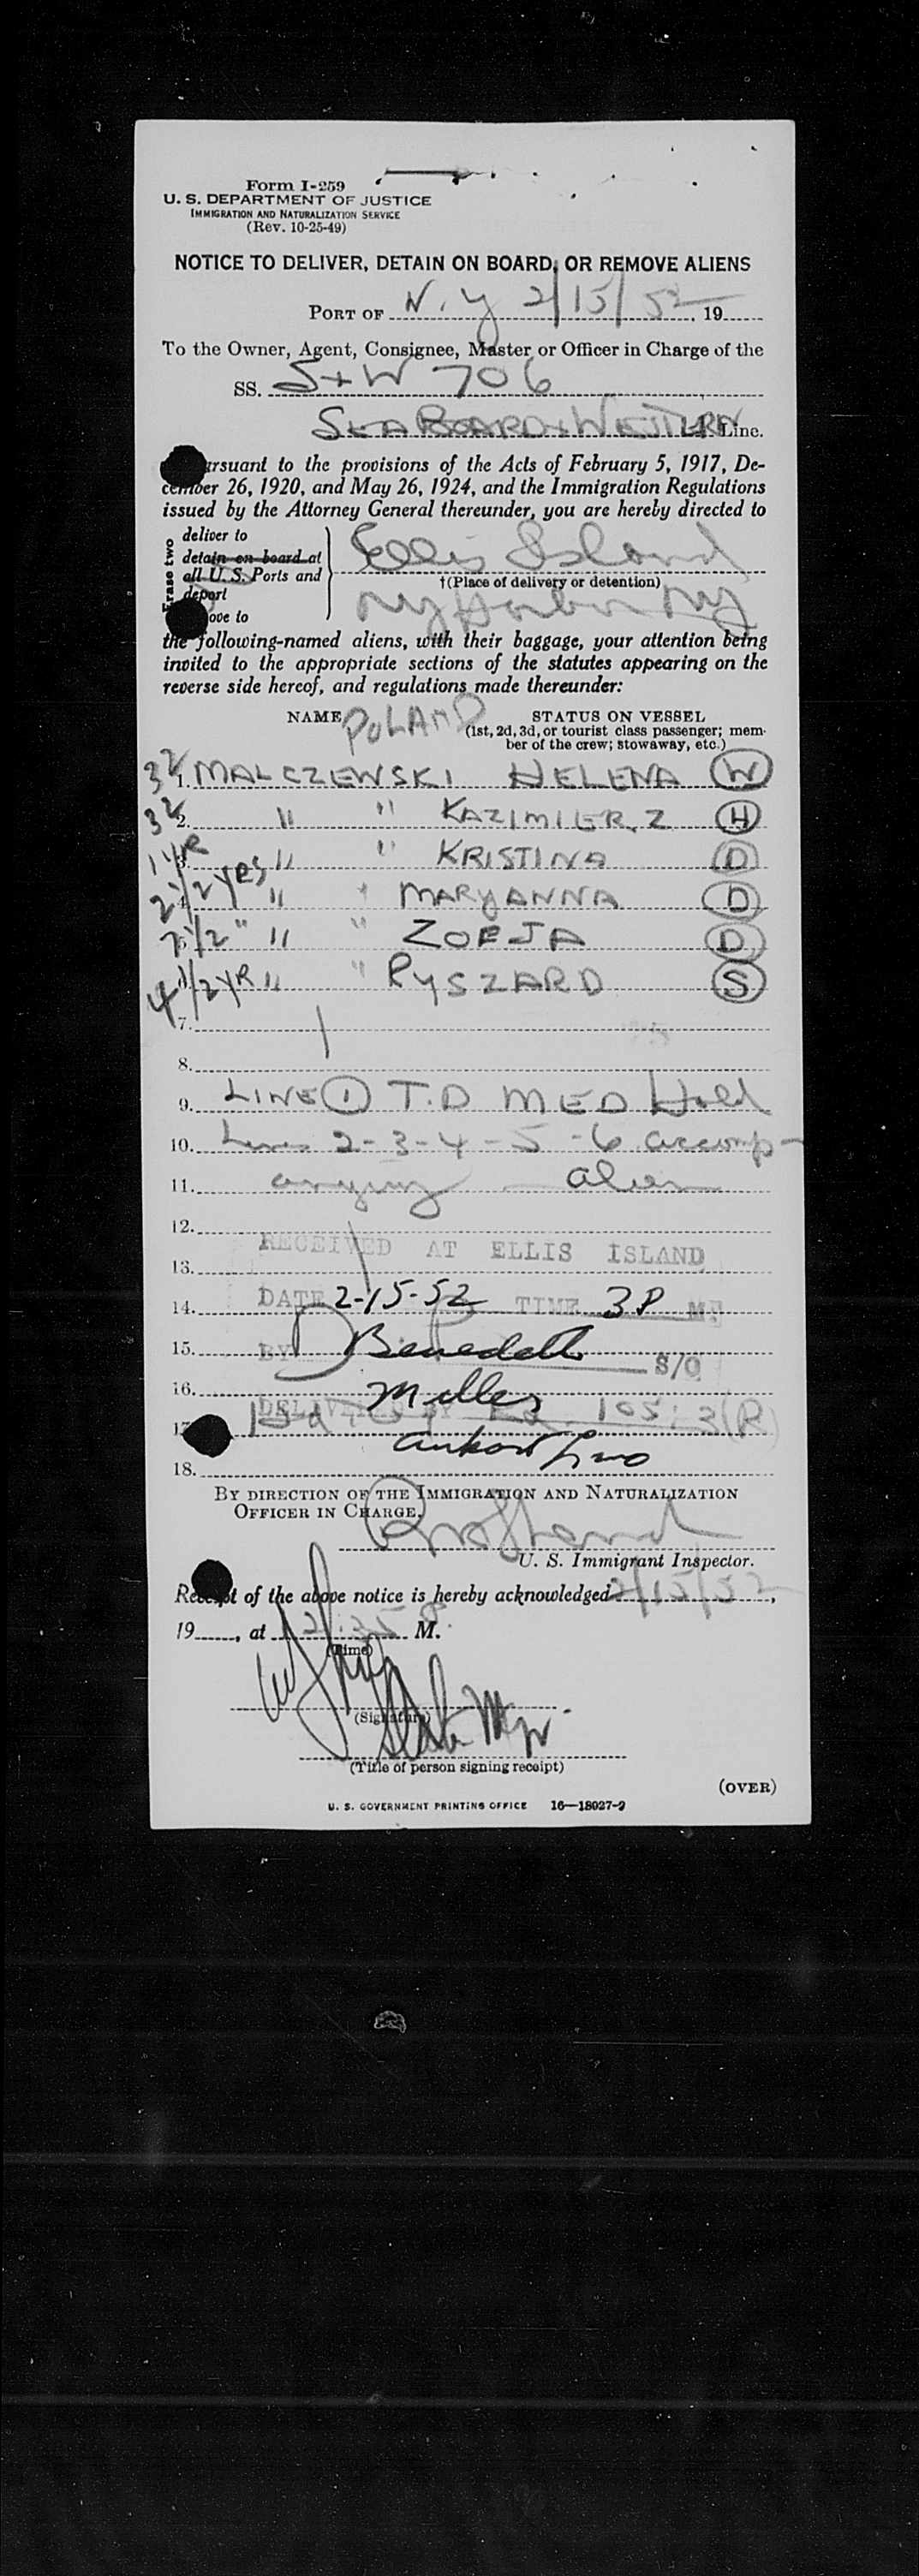 Form I-259
U. S. DEPARTMENT OF JUSTICE
IMMIGRATION AND NATURALIZATION SERVICE
(Rev. 10-25-49)
NOTICE TO DELIVER, DETAIN ON BOARD, OR REMOVE ALIENS
PORT OF N.Y 2/15/52, 19
To the Owner, Agent, Consignee, Master or Officer in Charge of the
SS. S+W 706
SEABOARD & WESTERN Line.
rsuant to the provisions of the Acts of February 5, 1917, De-
cember 26, 1920, and May 26, 1924, and the Immigration Regulations
issued by the Attorney General thereunder, you are hereby directed to
Erase two
deliver to
detain on board at
all U. S. Ports and
deport
ove to
Ellis Island
†(Place of delivery or detention)
NY Harbor NY
the following-named aliens, with their baggage, your attention being
invited to the appropriate sections of the statutes appearing on the
reverse side hereof, and regulations made thereunder:
NAME POLAND STATUS ON VESSEL
(1st, 2d, 3d, or tourist class passenger; mem-
ber of the crew; stowaway, etc.)
32 1. MALCZEWSKI HELENA W
32 2. " " KAZIMIERZ H
1 YR 3. " " KRISTINA D
2 1/2 YRS 4. " " MARYANNA D
7 1/2 " 5. " " ZOFJA D
4 1/2 YR " " RYSZARD S
7.
8.
9. LINE 1 T.D MED Hold
10. Lines 2-3-4-5-6 accomp-
11. anying alien
12.
RECEIVED AT ELLIS ISLAND
13.
14. DATE 2-15-52 TIME 3P M.
15. BY Benedetto S/O
16. Miller
17. DELIVERED BY 105:3(R)
18.
BY DIRECTION OF THE IMMIGRATION AND NATURALIZATION
OFFICER IN CHARGE.
U. S. Immigrant Inspector.
Receipt of the above notice is hereby acknowledged 2/15/52,
19, at 12:35 P M.
(Time)
(Signature)
Sta Mgr.
(Title of person signing receipt)
(OVER)
U. S. GOVERNMENT PRINTING OFFICE 16—18027-2